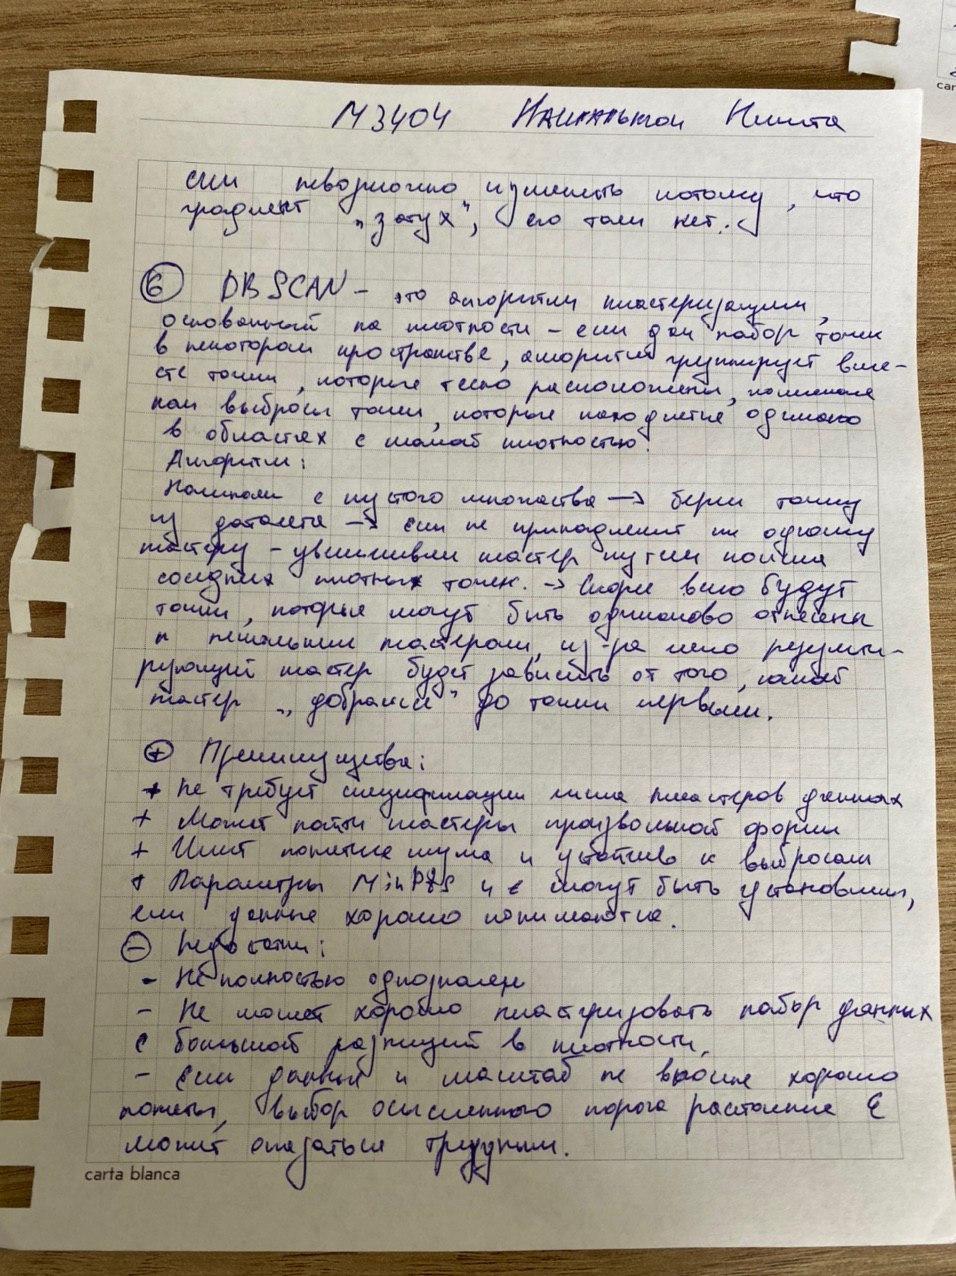 М3404 Никита
если невозможно изменить потому, что
градиент "затух", его там нет.
6 DBSCAN - это алгоритм кластеризации,
основанный на плотности - если дан набор точек
в некотором пространстве, алгоритм группирует вме-
сте точки, которые тесно расположены, помечая
как выбросы точки, которые находятся одиноко
в областях с малой плотностью.
Алгоритм:
Начинаем с пустого множества → берем точку
из датасета → если не принадлежит ни одному
кластеру - увеличиваем кластер путем поиска
соседних плотных точек. → Скорее всего будут
точки, которые могут быть одинаково отнесены
к нескольким кластерам, из-за чего результи-
рующий кластер будет зависеть от того, какой
кластер "добрался" до точки первым.
+ Преимущества:
+ Не требует спецификации числа кластеров данных
+ Может найти кластеры произвольной формы
+ Имеет понятие шума и устойчив к выбросам
+ Параметры MinPts и ε могут быть установлены,
если данные хорошо понимаются.
- Недостатки:
- Не полностью однозначен
- Не может хорошо кластеризовать набор данных
с большой разницей в плотности,
- Если данные и масштаб не вполне хорошо
поняты, выбор осмысленного порога расстояние ε
может оказаться трудным.
carta blanca
car